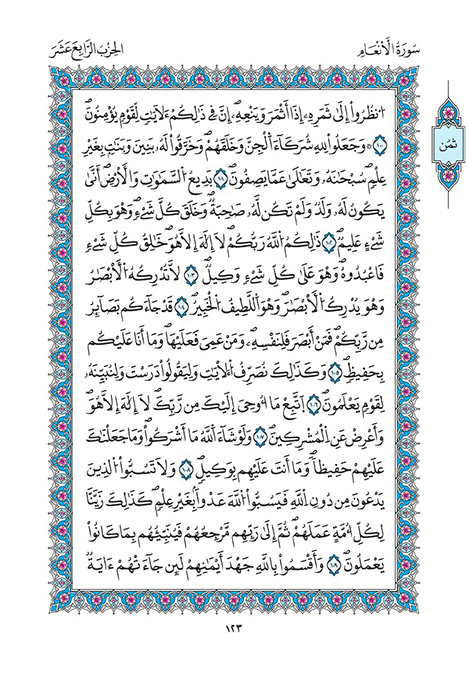 سُورَةُ الْأَنْعَامِ
الحِزْبُ الرَّابِعَ عَشَرَ
ثُمُن
اَ۟نظُرُوٓا۟ إِلَىٰ ثَمَرِهِۦٓ إِذَآ أَثْمَرَ وَيَنْعِهِۦٓۖ إِنَّ فِے ذَٰلِكُمْ ءَلَأٓيَٰتٖ لِّقَوْمٖ يُومِنُونَۖ
١٠٠ ۞وَجَعَلُوا۟ لِلهِ شُرَكَآءَ اَ۬لْجِنَّ وَخَلَقَهُمْۖ وَخَرَّقُوا۟ لَهُۥ بَنِينَ وَبَنَٰتِۢ بِغَيْرِ
عِلْمٖۖ سُبْحَٰنَهُۥ وَتَعَٰلَىٰ عَمَّا يَصِفُونَۖ ١٠١ بَدِيعُ اُ۬لسَّمَٰوَٰتِ وَالَارْضِۖ أَنَّىٰ
يَكُونُ لَهُۥ وَلَدٞ وَلَمْ تَكُن لَّهُۥ صَٰحِبَةٞۖ وَخَلَقَ كُلَّ شَےْءٖۖ وَهُوَ بِكُلِّ
شَےْءٍ عَلِيمٞۖ ١٠٢ ذَٰلِكُمُ اُ۬للَّهُ رَبُّكُمْۖ لَآ إِلَٰهَ إِلَّا هُوَۖ خَٰلِقُ كُلِّ شَےْءٖ
فَاعْبُدُوهُۖ وَهُوَ عَلَىٰ كُلِّ شَےْءٖ وَكِيلٞۖ ١٠٣ لَّا تُدْرِكُهُ اُ۬لَابْصَٰرُ
وَهُوَ يُدْرِكُ اُ۬لَابْصَٰرَۖ وَهُوَ اَ۬للَّطِيفُ اُ۬لْخَبِيرُۖ ١٠٤ قَدْ جَآءَكُم بَصَآئِرُ
مِن رَّبِّكُمْۖ فَمَنَ اَبْصَرَ فَلِنَفْسِهِۦۖ وَمَنْ عَمِيَ فَعَلَيْهَاۖ وَمَآ أَنَا عَلَيْكُم
بِحَفِيظٖۖ ١٠٥ وَكَذَٰلِكَ نُصَرِّفُ اُ۬لَايَٰتِ وَلِيَقُولُوا۟ دَرَسْتَ وَلِنُبَيِّنَهُۥ
لِقَوْمٖ يَعْلَمُونَۖ ١٠٦ اَ۪تَّبِعْ مَآ أُوحِيَ إِلَيْكَ مِن رَّبِّكَۖ لَآ إِلَٰهَ إِلَّا هُوَۖ
وَأَعْرِضْ عَنِ اِ۬لْمُشْرِكِينَۖ ١٠٧ وَلَوْ شَآءَ اَ۬للَّهُ مَآ أَشْرَكُوا۟ۖ وَمَا جَعَلْنَٰكَ
عَلَيْهِمْ حَفِيظاٗۖ وَمَآ أَنتَ عَلَيْهِم بِوَكِيلٖۖ ١٠٨ وَلَا تَسُبُّوا۟ اُ۬لذِينَ
يَدْعُونَ مِن دُونِ اِ۬للَّهِ فَيَسُبُّوا۟ اُ۬للَّهَ عَدْواَۢ بِغَيْرِ عِلْمٖۖ كَذَٰلِكَ زَيَّنَّا
لِكُلِّ أُمَّةٍ عَمَلَهُمْۖ ثُمَّ إِلَىٰ رَبِّهِم مَّرْجِعُهُمْ فَيُنَبِّئُهُم بِمَا كَانُوا۟
يَعْمَلُونَۖ ١٠٩ وَأَقْسَمُوا۟ بِاللَّهِ جَهْدَ أَيْمَٰنِهِمْ لَئِن جَآءَتْهُمُۥٓ ءَايَةٞ
١٢٣